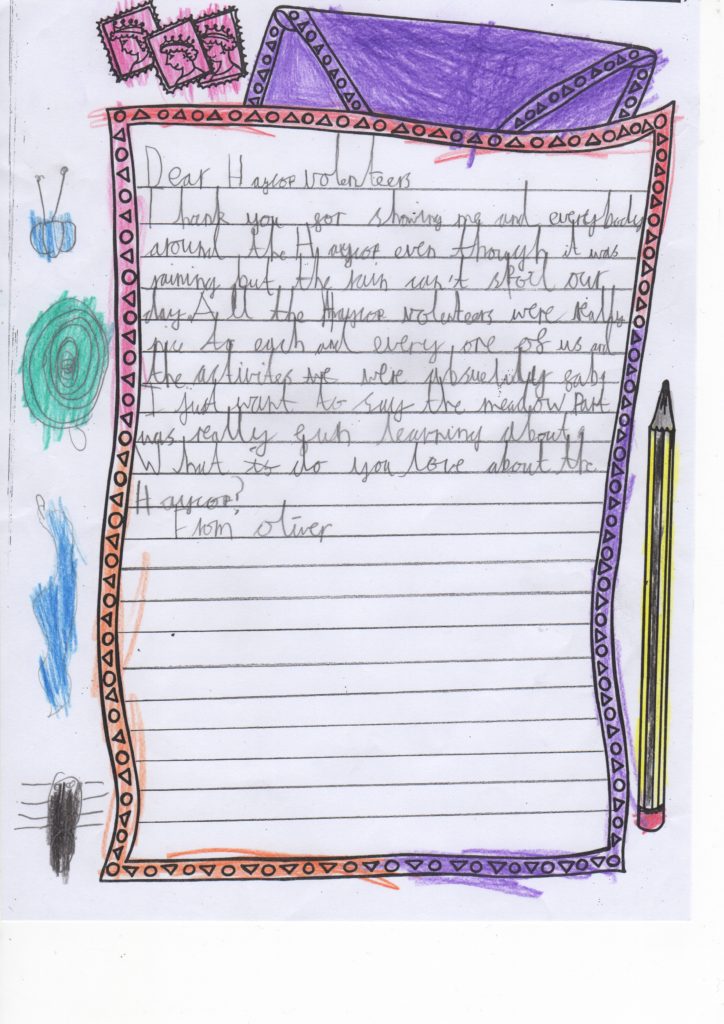 Dear Haycop Volenteers
Thank you for showing me and everybody
around the Haycop even though it was
raining but the rain can't spoil our
day. All the Haycop Volenteers were really
nic to each and every one of us and
the activites we were absuelidly fab,
I just want to say the meadow part
was really fun learning about,
What is do you love about the
Haycop?
From oliver